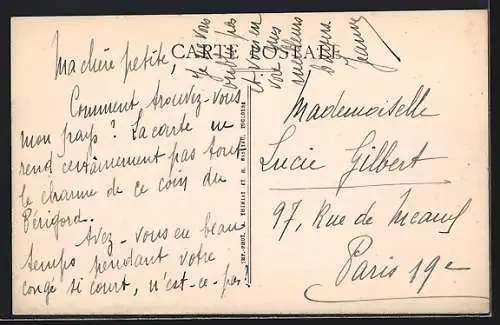 CARTE POSTALE
Ma chère petite,
Comment trouvez-vous
mon pays? La carte ne
rend certainement pas tout
le charme de ce coin du
Périgord.
Avez-vous eu beau
temps pendant votre
congé si court, n'est-ce-pas?
Je ne vous
oublie pas
et vous en
mes
meilleurs
baisers
Jeanne
Mademoiselle
Lucie Gilbert
97, Rue de Meaux
Paris 19e